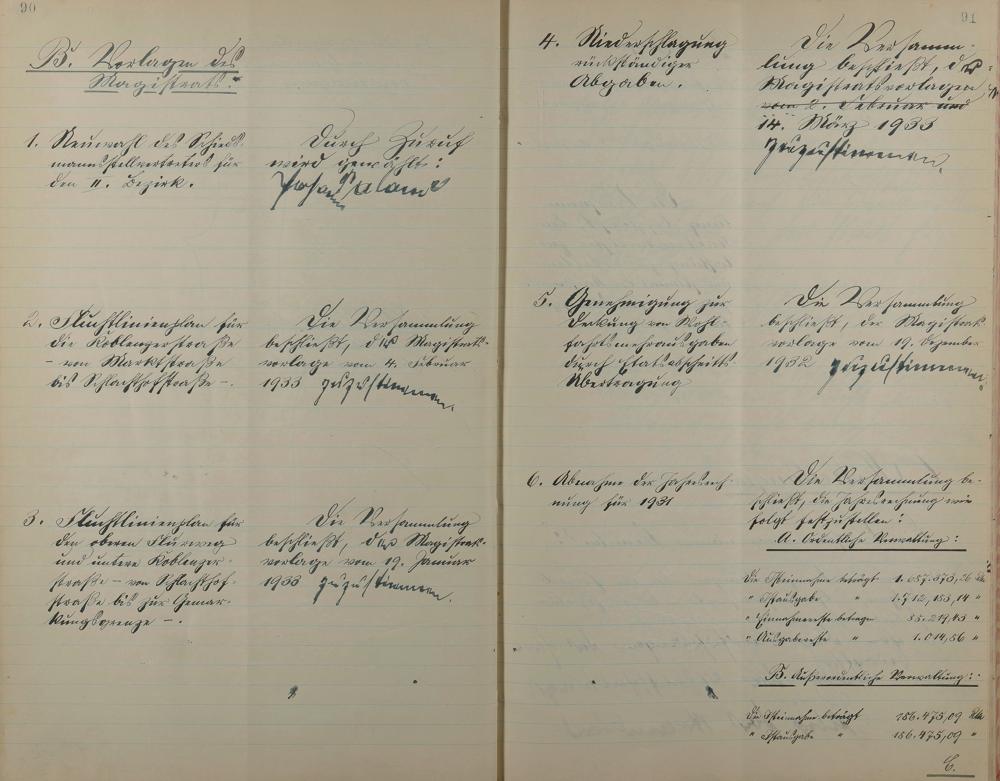 90
B. Vorlagen des
Magistrats:
1. Neuwahl des Schieds-
mannsstellvertreters für
den II. Bezirk.
Durch Zuruf
wird gewählt:
2. Fluchtlinienplan für
die Koblenzerstraße
- von Marktstraße
bis Schlachthofstraße -.
Die Versammlung
beschließt, der Magistrats-
vorlage vom 4. Februar
1933 zuzustimmen.
3. Fluchtlinienplan für
den oberen Flurweg
und untere Koblenzer-
straße - von Schlachthof-
straße bis zur Gemar-
kungsgrenze -.
Die Versammlung
beschließt, der Magistrats-
vorlage vom 19. Januar
1933 zuzustimmen.
91
4. Niederschlagung
rückständiger
Abgaben.
Die Versamm-
lung beschließt, der
Magistratsvorlagen
vom 2. Februar und
14. März 1933
zuzustimmen.
5. Genehmigung zur
Deckung von Wohl-
fahrtsmehrausgaben
durch Etatsabschnitts
Übertragung
Die Versammlung
beschließt, der Magistrats
vorlage vom 19. Dezember
1932 zuzustimmen.
6. Abnahme der Jahresrech-
nung für 1931
Die Versammlung be-
schließt, die Jahresrechnung wie
folgt festzustellen:
A. Ordentliche Verwaltung:
Die Isteinnahme beträgt 1.657.373,26 RM
" Istausgabe " 1.712,153,14 "
" Einnahmereste betragen 55.219,43 "
" Ausgabereste " 1.014,56 "
B. Außerordentliche Verwaltung:
Die Isteinnahme beträgt 186.475,09 RM
" Istausgabe " 186.475,09 "
C.